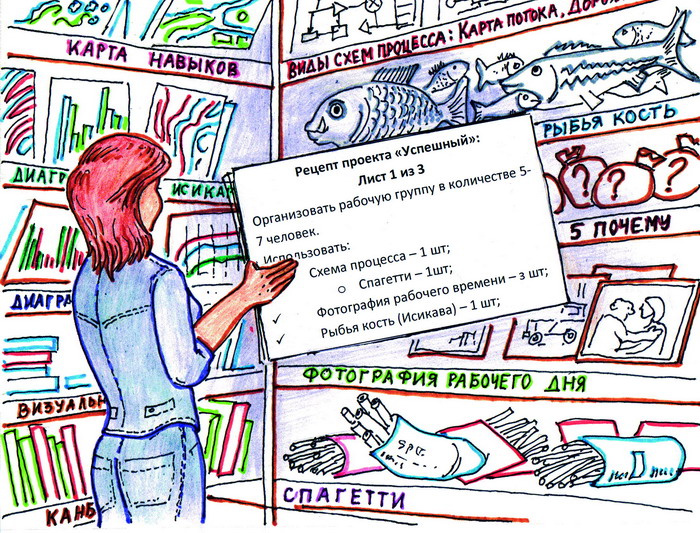 КАРТА НАВЫКОВ
ВИДЫ СХЕМ ПРОЦЕССА: КАРТА ПОТОКА,
РЫБЬЯ КОСТЬ
ДИАГР
ИСИКАВ
? ? ?
5 ПОЧЕМУ
Рецепт проекта «Успешный»:
Лист 1 из 3
Организовать рабочую группу в количестве 5-
7 человек.
Использовать:
Схема процесса – 1 шт;
o Спагетти – 1шт;
✓ Фотография рабочего времени – 3 шт;
✓ Рыбья кость (Исикава) – 1 шт;
ДИАГРА
ВИЗУАЛЬН
ФОТОГРАФИЯ РАБОЧЕГО ДНЯ
КАНБ
СПАГЕТТИ